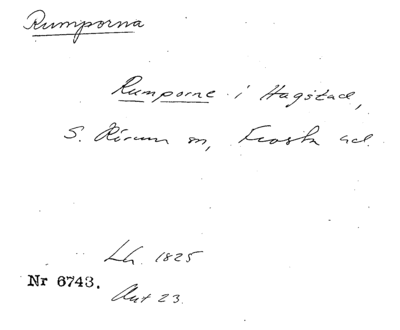 Rumporna
Rumporne i Hagstad,
S. Rörum sn, Frosta hd.
Lh. 1825
Nr 6743.
Akt 23.